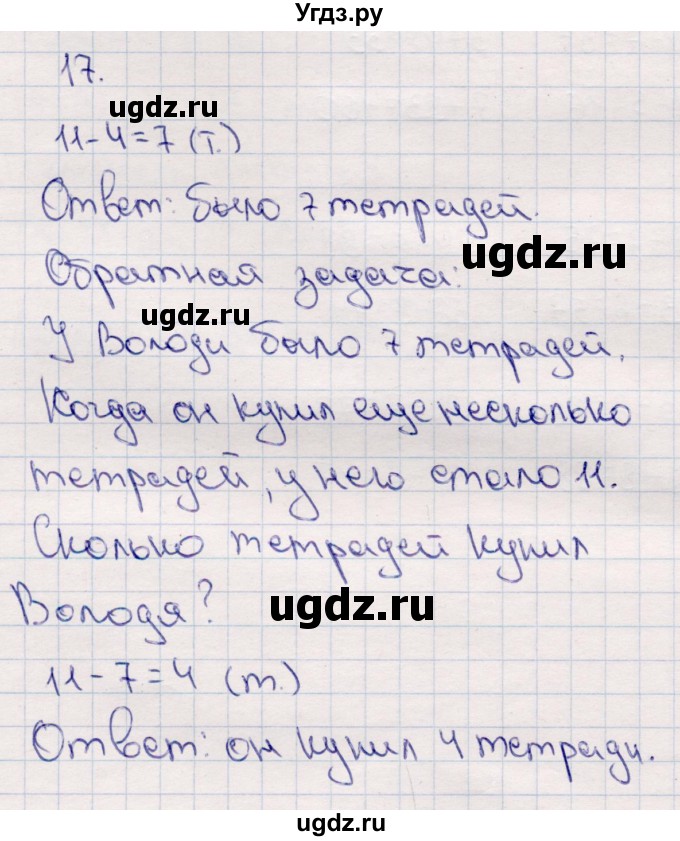 Угдз.ру
17.
ugdz.ru
11-4=7 (т.)
Ответ: было 7 тетрадей.
ugdz.ru
Обратная задача:
ugdz.ru
У Володи было 7 тетрадей.
Когда он купил еще несколько
тетрадей, у него стало 11.
Сколько тетрадей купил
Володя?
ugdz.ru
11-7=4 (т.)
Ответ: он купил 4 тетради.
ugdz.ru